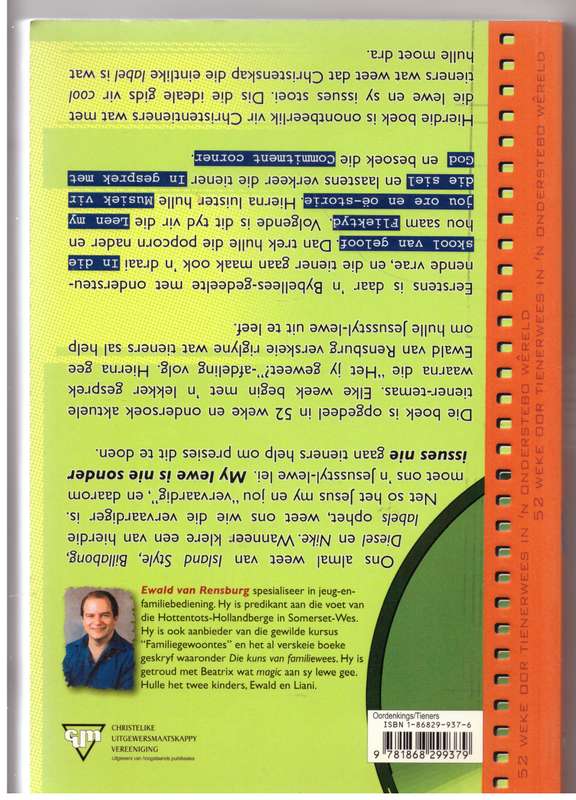 Ons almal weet van Island Style, Billabong,
Diesel en Nike. Wanneer klere een van hierdie
labels ophet, weet ons wie die vervaardiger is.
Net so het Jesus my en jou “vervaardig”, en daarom
moet ons 'n Jesusstyl-lewe lei. My lewe is nie sonder
issues nie gaan tieners help om presies dit te doen.
Die boek is opgedeel in 52 weke en ondersoek aktuele
tiener-temas. Elke week begin met 'n lekker gesprek
waarna die “Het jy geweet”-afdeling volg. Hierna gee
Ewald van Rensburg verskeie riglyne wat tieners sal help
om hulle Jesusstyl-lewe uit te leef.
Eerstens is daar 'n Bybellees-gedeelte met ondersteu-
nende vrae, en die tiener gaan maak ook 'n draai In die
skool van geloof. Dan trek hulle die popcorn nader en
hou saam Fliektyd. Volgende is dit tyd vir die Leen my
jou ore en oë-storie. Hierna luister hulle Musiek vir
die siel en laastens verkeer die tiener In gesprek met
God en besoek die Commitment corner.
Hierdie boek is onontbeerlik vir Christentieners wat met
die lewe en sy issues stoei. Dis die ideale gids vir cool
tieners wat weet dat Christenskap die eintlike label is wat
hulle moet dra.
Ewald van Rensburg spesialiseer in jeug-en-
familiebediening. Hy is predikant aan die voet van
die Hottentots-Hollandberge in Somerset-Wes.
Hy is ook aanbieder van die gewilde kursus
“Familiegewoontes” en het al verskeie boeke
geskryf waaronder Die kuns van familiewees. Hy is
getroud met Beatrix wat magic aan sy lewe gee.
Hulle het twee kinders, Ewald en Liani.
cum
CHRISTELIKE
UITGEWERSMAATSKAPPY
VEREENIGING
Uitgewers van hoogstaande publikasies
Oordenkings/Tieners
ISBN 1-86829-937-6
9 781868 299379
52 WEKE OOR TIENERWEES IN 'N ONDERSTEBO WÊRELD
52 WEKE OOR TIENERWEES IN 'N ONDERSTEBO WÊRELD